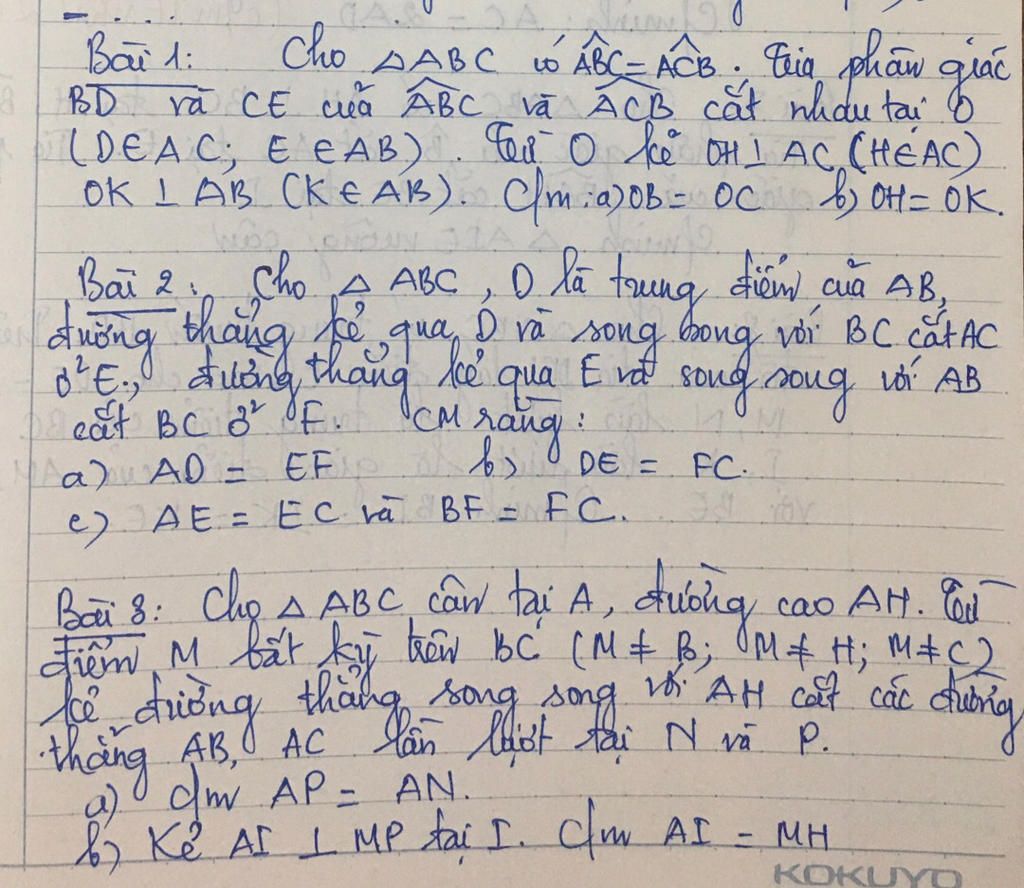 C/minh: AC = 2AD
Bài 1: Cho △ABC có ABC^ = ACB^. Tia phân giác
BD và CE của ABC^ và ACB^ cắt nhau tại O
(D∈AC; E∈AB). Từ O kẻ OH⊥AC (H∈AC)
OK ⊥ AB (K∈AB). C/m: a) OB = OC b) OH = OK.
Bài 2: Cho △ ABC, D là trung điểm của AB,
đường thẳng kẻ qua D và song song với BC cắt AC
ở E., đường thẳng kẻ qua E và song song với AB
cắt BC ở F. CM rằng:
a) AD = EF b) DE = FC.
c) AE = EC và BF = FC.
Bài 3: Cho △ ABC cân tại A, đường cao AH. Từ
điểm M bất kỳ trên BC (M ≠ B; M ≠ H; M ≠ C)
kẻ đường thẳng song song với AH cắt các đường
thẳng AB, AC lần lượt tại N và P.
a) C/m AP = AN.
b) Kẻ AI ⊥ MP tại I. C/m AI = MH
KOKUYO